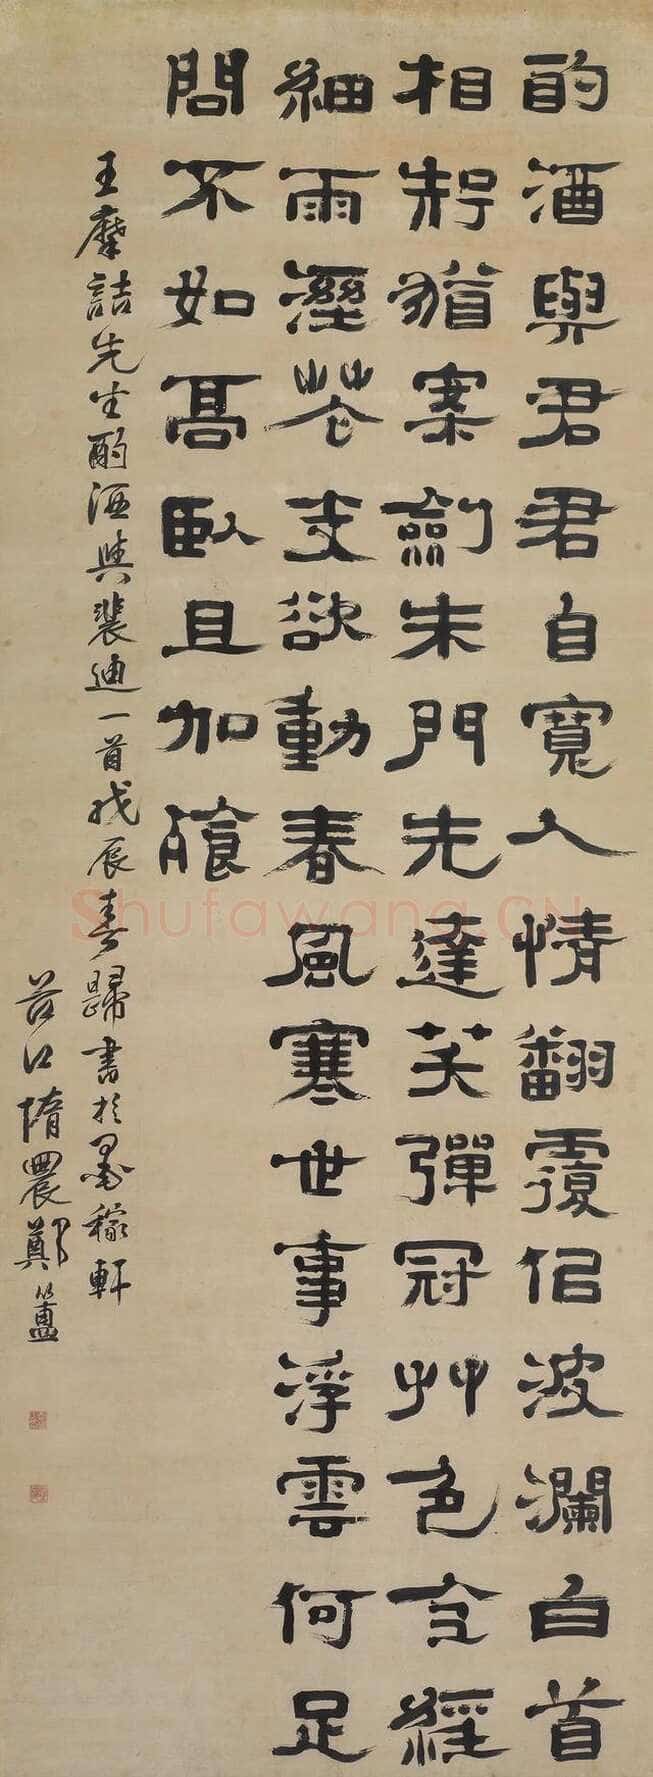 酌酒與君君自寬人情翻覆佀波瀾白首
相知猶案劍朱門先達笑彈冠艸色全經
細雨溼花支欲動春風寒世事浮雲何足
問不如高臥且加飧
王摩詰先生酌酒與裴迪一首戊辰春歸書於墨稼軒
苕江惰農鄭簠
Shufawang.CN